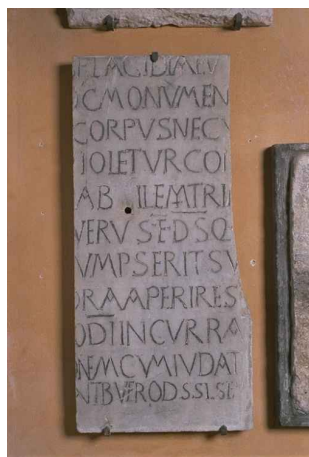 PLACIDIMEV
OCMONVMEN
CORPVSNECV
IOLETVRCOI
AB ILEMTRI
VERV SEDSQ
VMPSERITSV
ORAAPERIRES
ODIINCVRRA
NEMCVMIVDAT
NTBVERODSSLSB